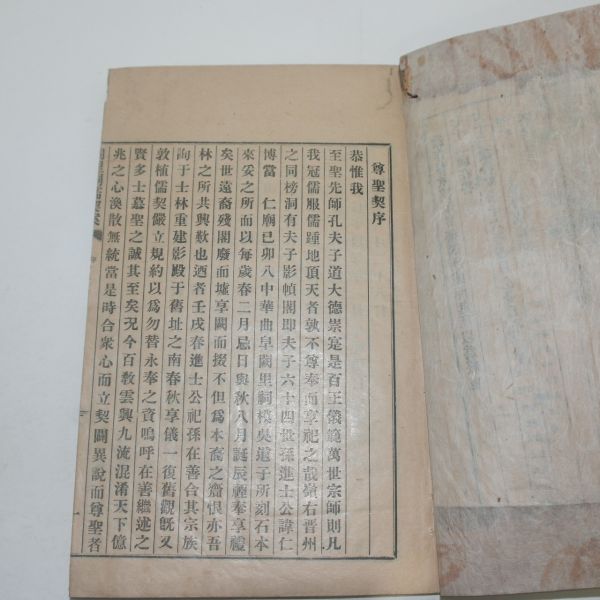 尊聖契序
恭惟我
至聖先師孔夫子道大德崇寔是百王儀範萬世宗師則凡
我冠儒服儒踵地頂天者孰不尊奉而享祀之哉嶺右晋州
之同榜洞有夫子影幀閣即夫子六十四世孫進士公諱仁
博當　仁廟己卯八中華曲阜闕里祠模吳道子所刻石本
來妥之所而以每歲春二月忌日與秋八月誕辰輒奉享禮
矣世遠裔殘閣廢而墟享闕而掇不但爲本裔之齎恨亦吾
林之所共興歎也迺者壬戌春進士公祀孫在善合其宗族
詢于士林重建影殿于舊址之南春秋享儀一復舊觀旣又
敦植儒契嚴立規約以爲勿替永奉之資嗚呼在善繼述之
賢多士慕聖之誠其至矣況今百敎雲興九流混淆天下億
兆之心渙散無統當是時合衆心而立契闢異說而尊聖者
一